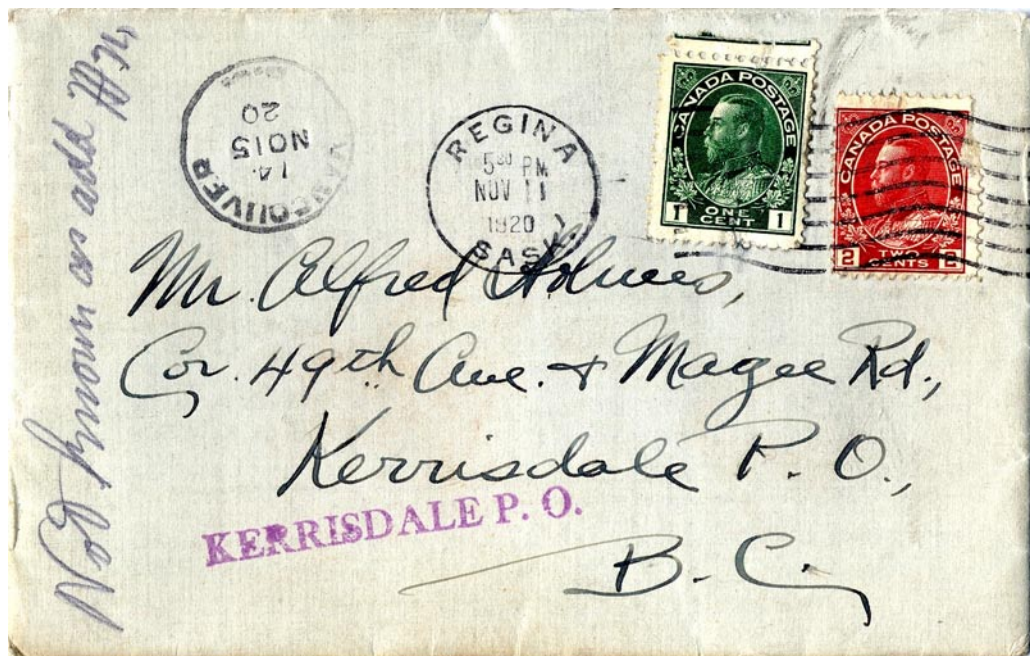 Not known as add
VANCOUVER
14
NO 15
20
REGINA
5 30 PM
NOV 11
1920
SASK.
CANADA POSTAGE
1 ONE CENT 1
CANADA POSTAGE
2 TWO CENTS 2
Mr. Alfred Holmes,
Cor. 49th Ave. & Magee Rd.,
Kerrisdale P. O.,
KERRISDALE P. O.
B. C.